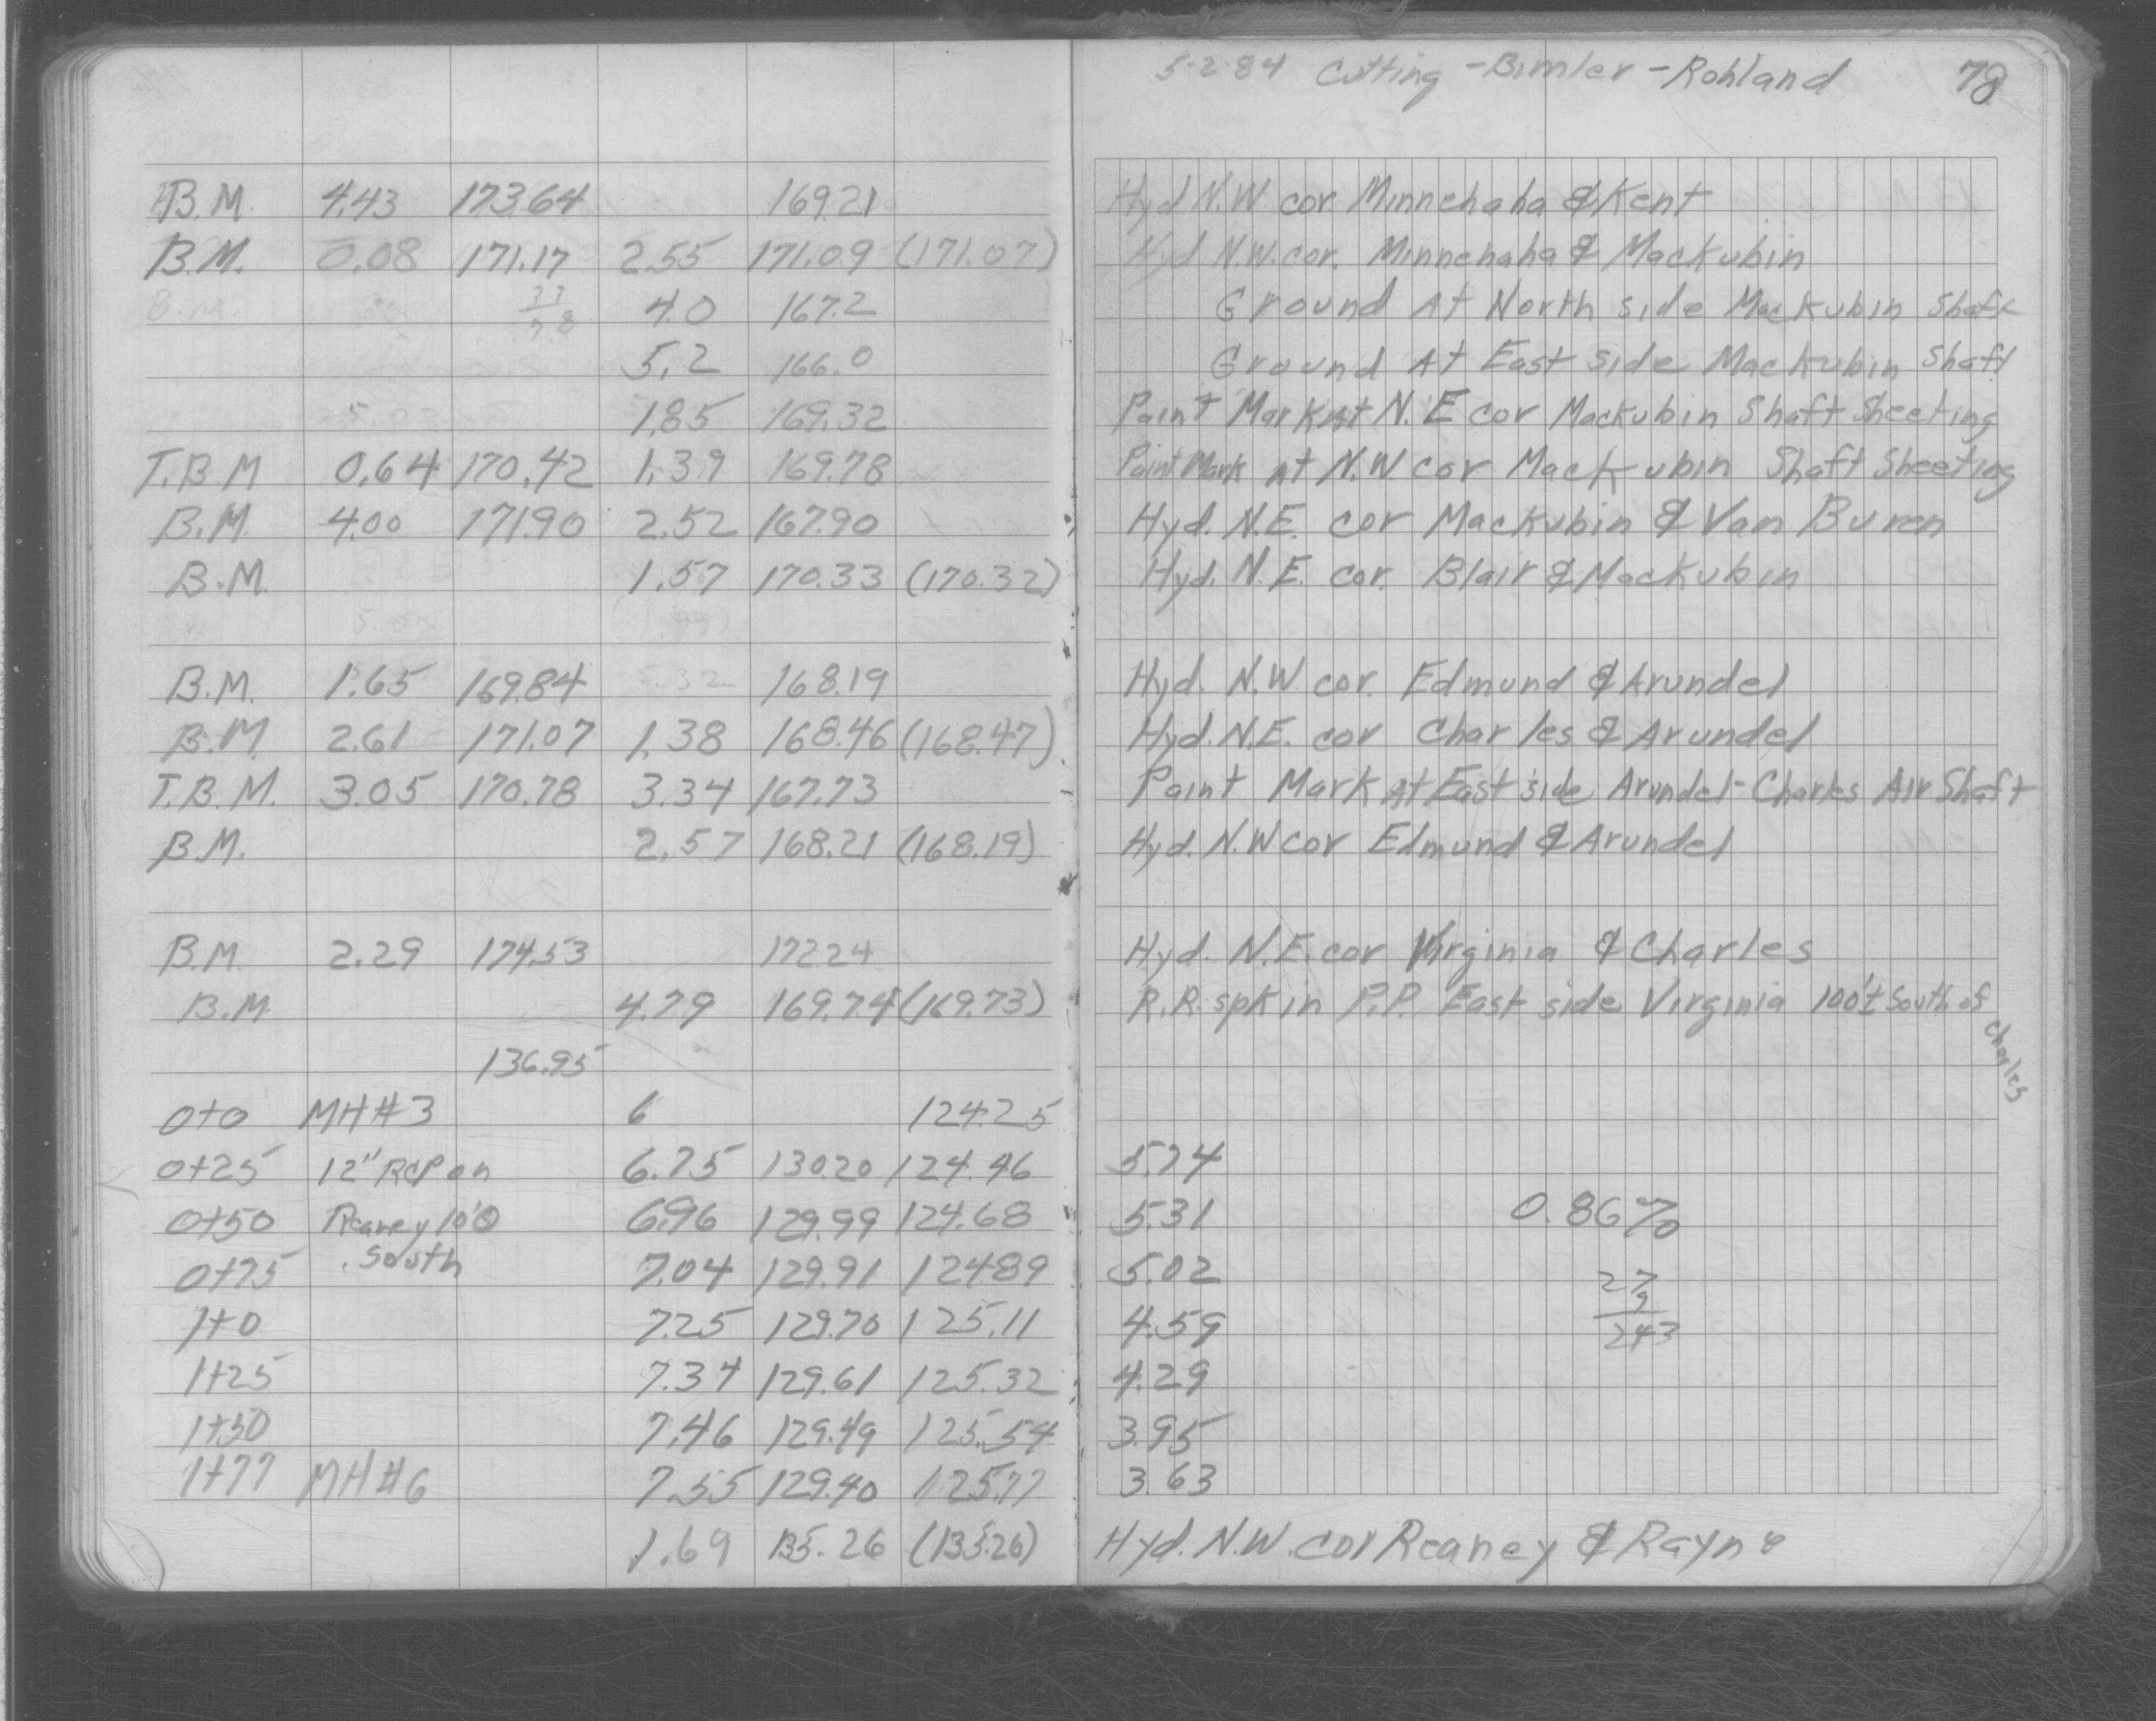 5-2-84 Cutting - Bimler - Rohland 78
B.M. 4.43 173.64 169.21 Hyd N.W. cor. Minnehaha & Kent
B.M. 0.08 171.17 2.55 171.09 (171.07) Hyd N.W. cor. Minnehaha & Mackubin
4.0 167.2 Ground At North side Mackubin Shaft
5.2 166.0 Ground At East side Mackubin Shaft
1.85 169.32 Paint Mark At N.E cor Mackubin Shaft Sheeting
T.B.M 0.64 170.42 1.39 169.78 Paint Mark At N.W. cor Mackubin Shaft Sheeting
B.M. 4.00 171.90 2.52 167.90 Hyd. N.E. cor Mackubin & Van Buren
B.M. 1.57 170.33 (170.32) Hyd. N.E. cor. Blair & Mackubin
B.M. 1.65 169.84 168.19 Hyd. N.W cor. Edmund & Arundel
B.M. 2.61 171.07 1.38 168.46 (168.47) Hyd. N.E. cor Charles & Arundel
T.B.M. 3.05 170.78 3.34 167.73 Paint Mark At East side Arundel-Charles Air Shaft
B.M. 2.57 168.21 (168.19) Hyd. N.W cor Edmund & Arundel
B.M. 2.29 174.53 172.24 Hyd. N.E. cor Virginia & Charles
B.M. 4.79 169.74 (169.73) R.R. spk in P.P. East side Virginia 100'± South of Charles
136.95
0+0 MH#3 6 124.25
0+25 12" RCP on 6.75 130.20 124.46 5.74
0+50 Reaney 10' 6.96 129.99 124.68 5.31 0.86%
South
0+75 7.04 129.91 124.89 5.02 27
9
1+0 7.25 129.70 125.11 4.59 243
1+25 7.34 129.61 125.32 4.29
1+50 7.46 129.49 125.54 3.95
1+77 MH#6 7.55 129.40 125.77 3.63
1.69 135.26 (135.26) Hyd. N.W. cor Reaney & Rayne